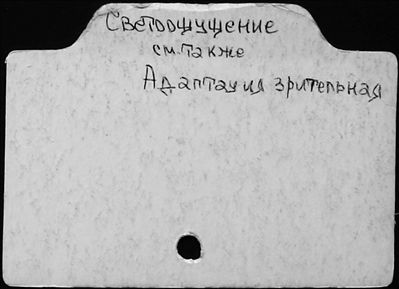 Светоощущение
см. также
Адаптация зрительная